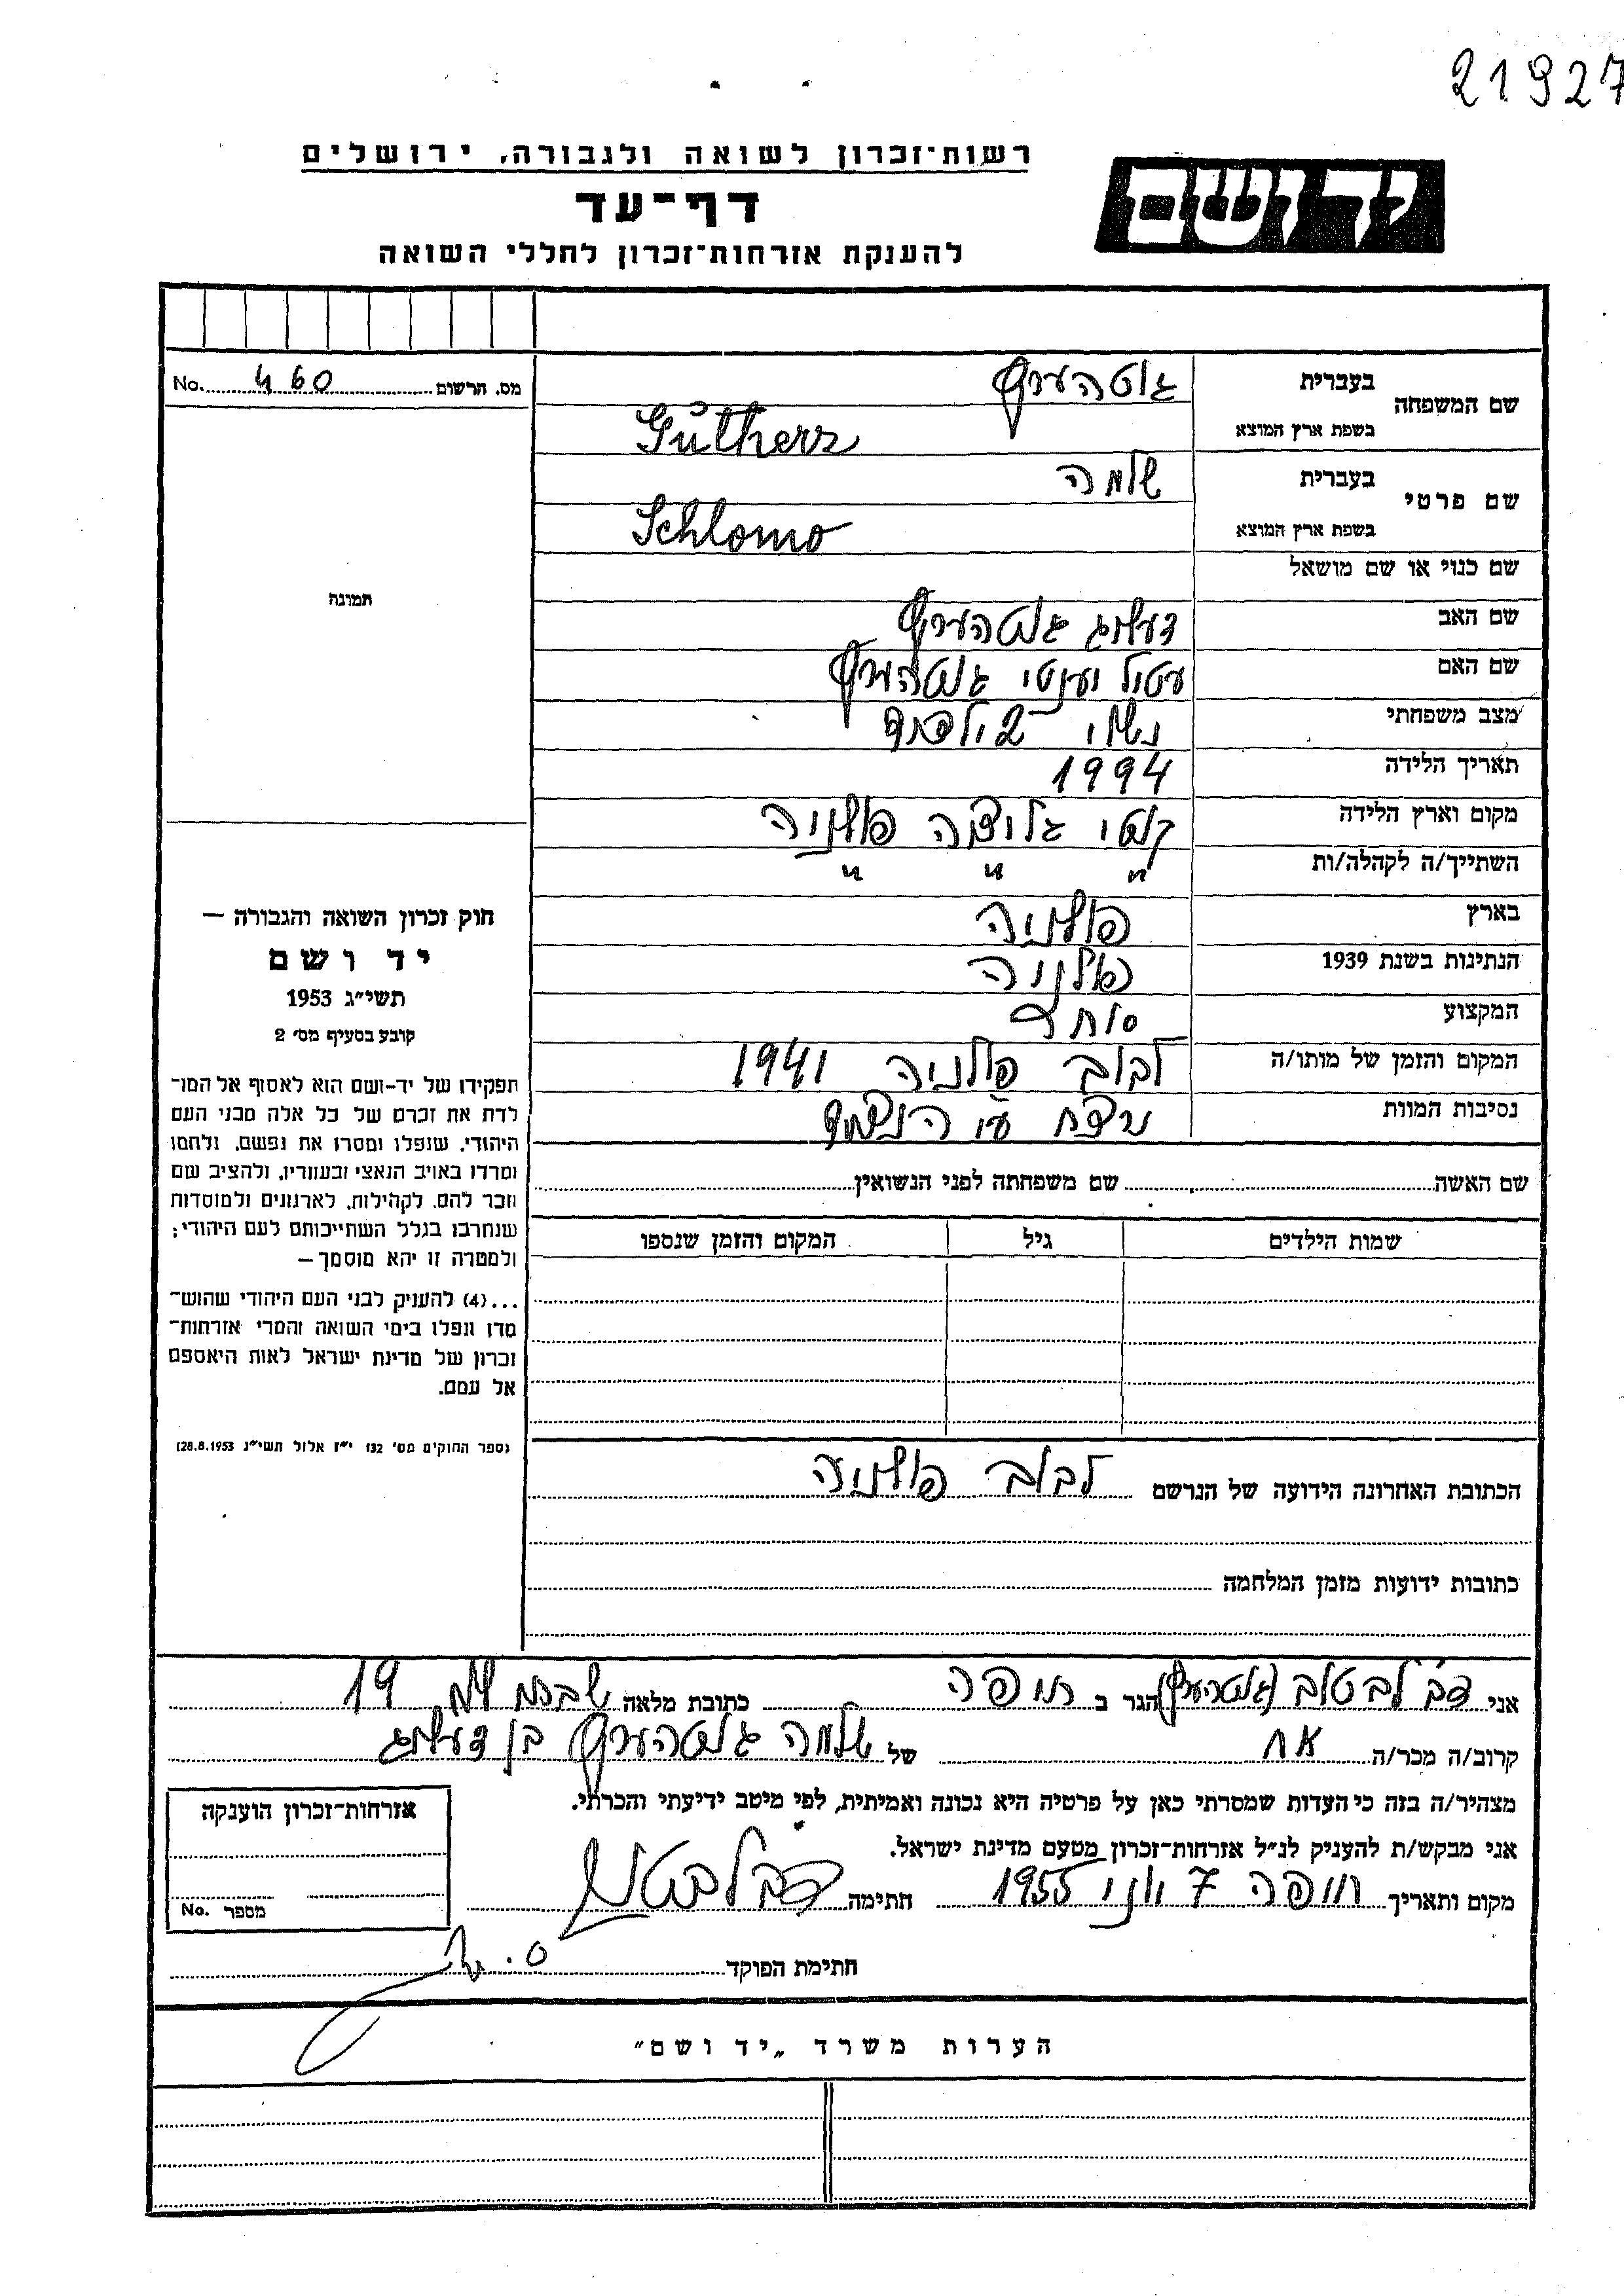 21927
רשות־זכרון לשואה ולגבורה, ירושלים
יד ושם
דף־עד
להענקת אזרחות־זכרון לחללי השואה
שם המשפחה
בעברית
גוטהערץ
בשפת ארץ המוצא
Gütherz
שם פרטי
בעברית
שלמה
בשפת ארץ המוצא
Schlomo
שם כנוי או שם מושאל
שם האב גוטהערץ
שם האם גוטהערץ
מצב משפחתי נשוי 2 ילדים
תאריך הלידה 1994
מקום וארץ הלידה קוטי גליציה פולניה
השתייך/ה לקהלה/ות " " "
בארץ פולניה
הנתינות בשנת 1939 פולניה
המקצוע סוחר
המקום והזמן של מותו/ה לבוב פולניה 1941
נסיבות המוות נרצח ע״י הנאצים
שם האשה שם משפחתה לפני הנשואין
שמות הילדים גיל המקום והזמן שנספו
הכתובת האחרונה הידועה של הנרשם לבוב פולניה
כתובות ידועות מזמן המלחמה
מס. הרשום 460 No.
תמונה
חוק זכרון השואה והגבורה —
יד ושם
תשי״ג 1953
קובע בסעיף מס׳ 2
תפקידו של יד־ושם הוא לאסוף אל המו־
לדת את זכרם של כל אלה מבני העם
היהודי, שנפלו ומסרו את נפשם, נלחמו
ומרדו באויב הנאצי ובעוזריו, ולהציב שם
וזכר להם, לקהילות, לארגונים ולמוסדות
שנחרבו בגלל השתייכותם לעם היהודי;
ולמטרה זו יהא מוסמך —
...(4) להעניק לבני העם היהודי שהוש־
מדו ונפלו בימי השואה והמרי אזרחות־
זכרון של מדינת ישראל לאות היאספם
אל עמם.
(ספר החוקים מס׳ 132 י״ז אלול תשי״ג 28.8.1953)
אני (גוטהערץ) הגר ב חיפה כתובת מלאה 19
קרוב/ה מכר/ה אח של שלמה גוטהערץ בן
מצהיר/ה בזה כי העדות שמסרתי כאן על פרטיה היא נכונה ואמיתית, לפי מיטב ידיעתי והכרתי.
אני מבקש/ת להעניק לנ״ל אזרחות־זכרון מטעם מדינת ישראל.
מקום ותאריך חיפה 7 יוני 1955 חתימה
חתימת הפוקד
אזרחות־זכרון הוענקה
מספר No.
הערות משרד „יד ושם״